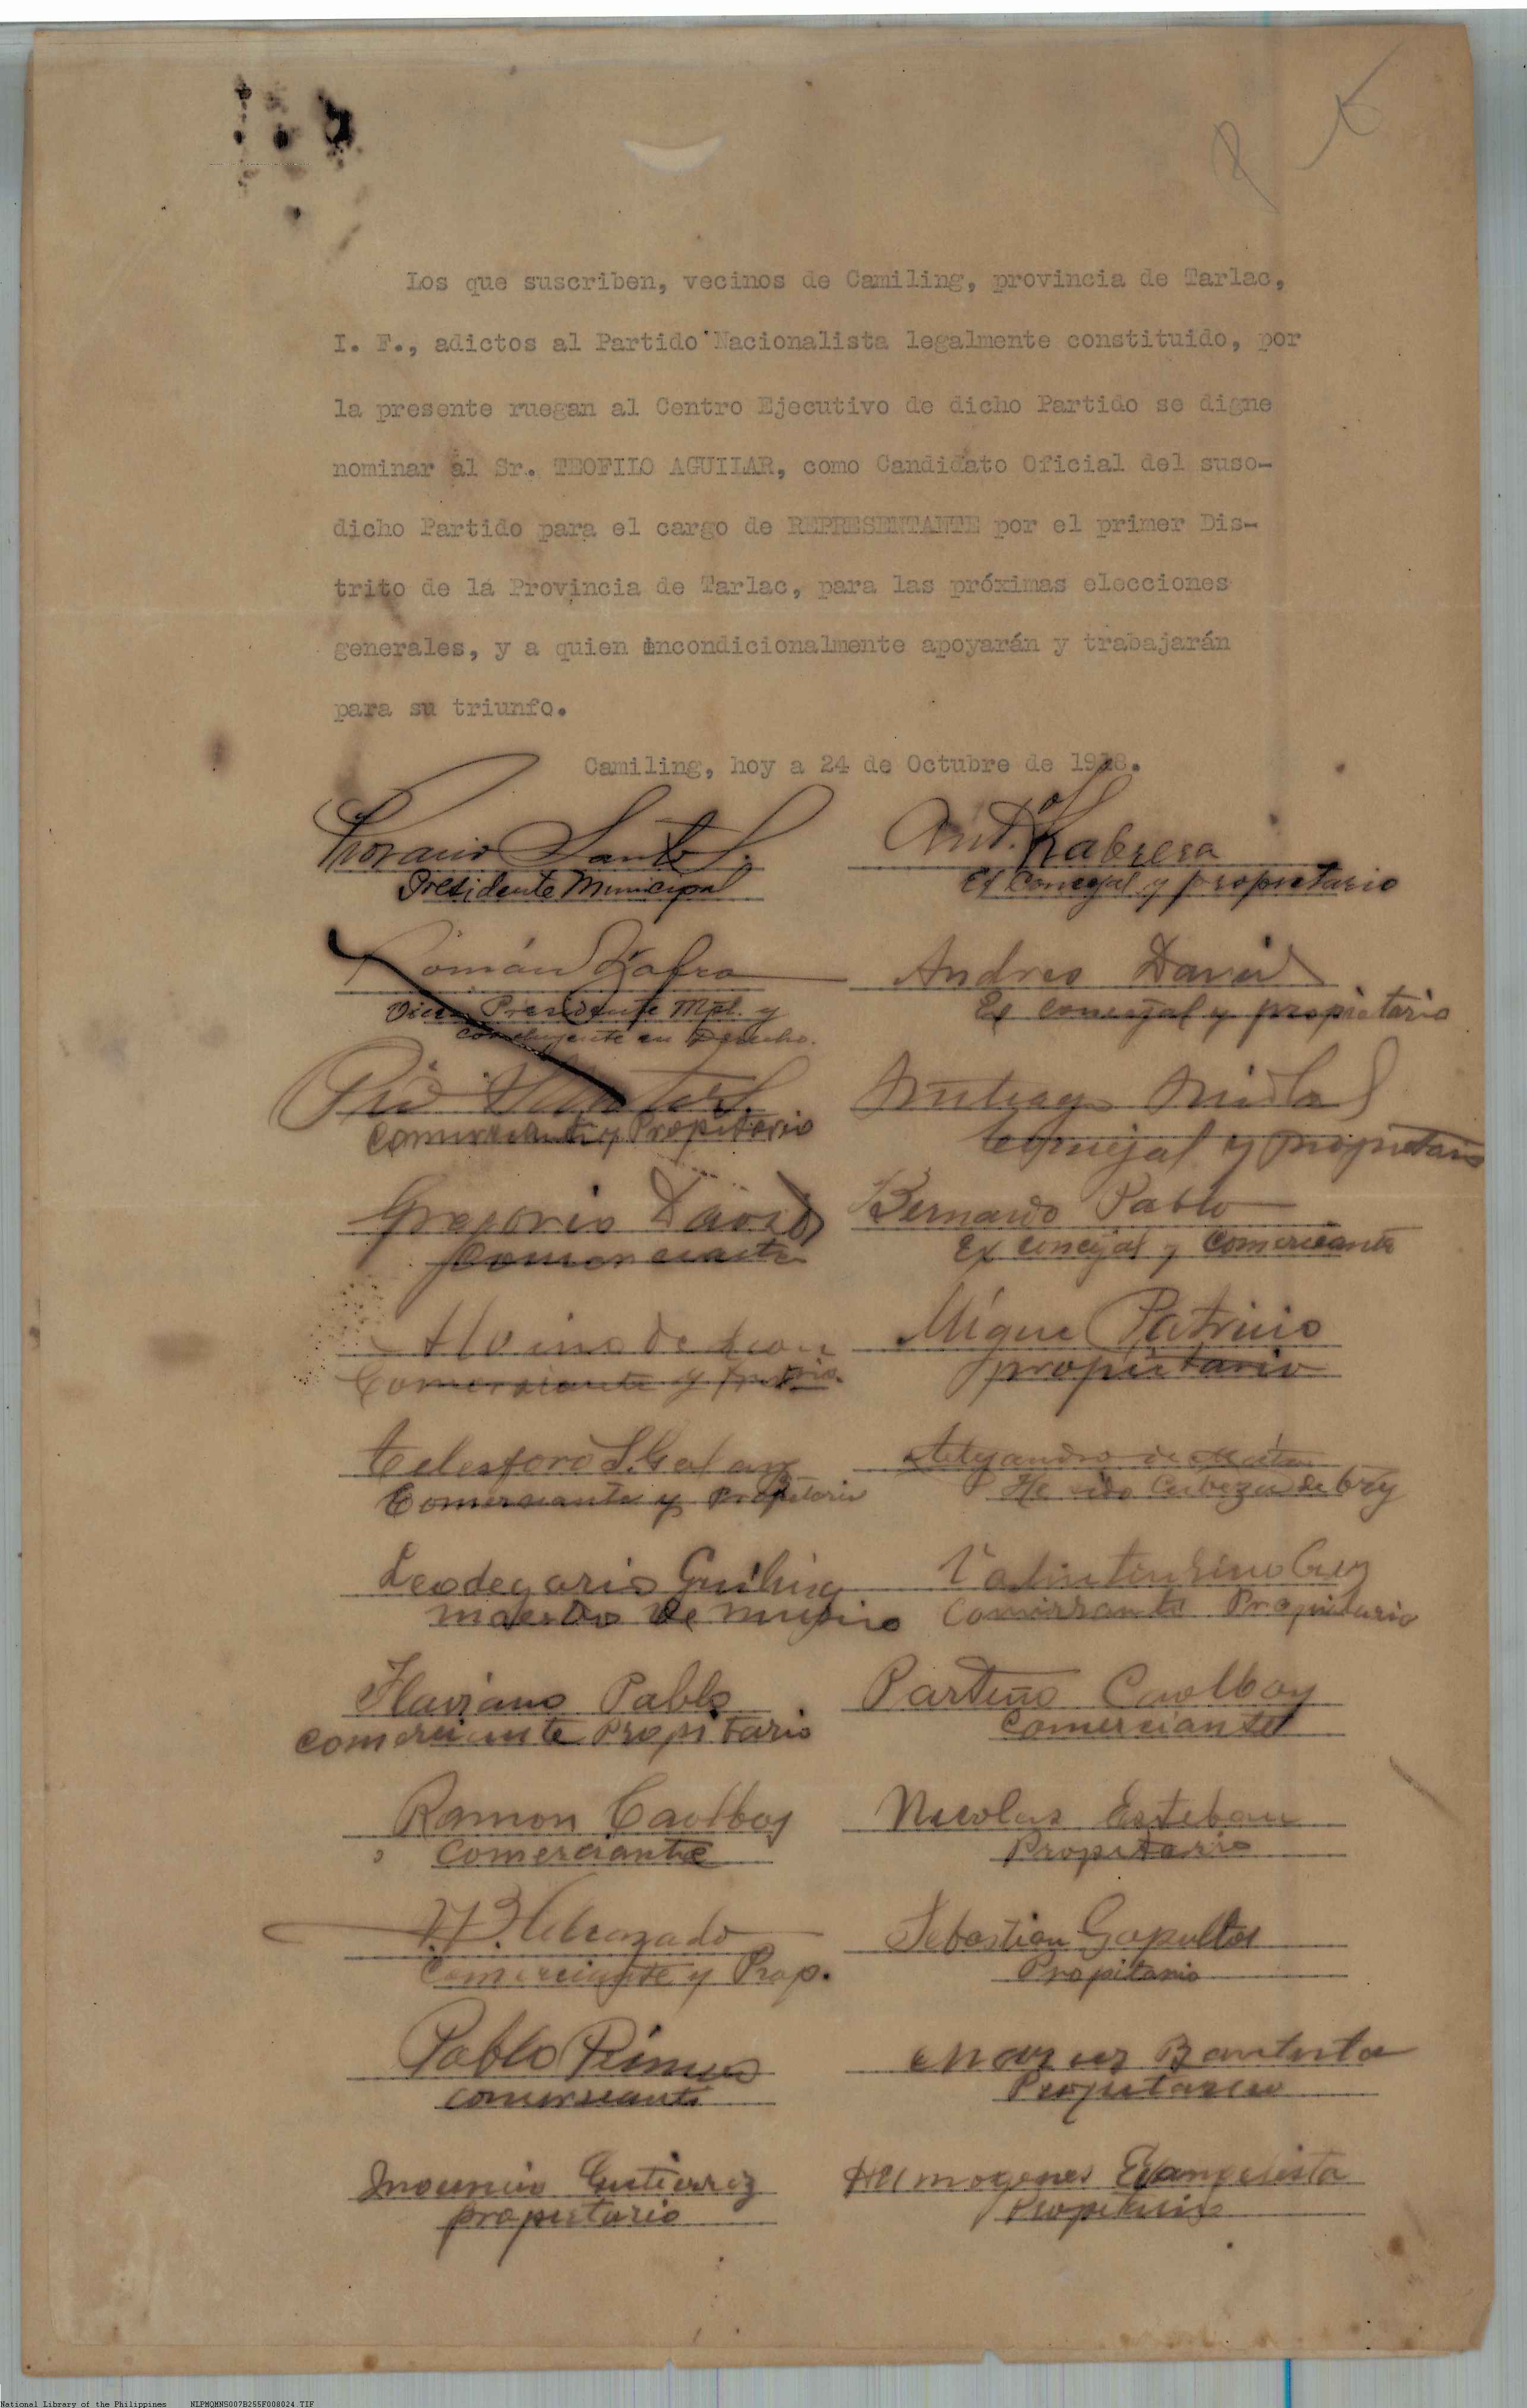 Los que suscriben, vecinos de Camiling, provincia de Tarlac,
I. F., adictos al Partido Nacionalista legalmente constituido, por
la presente ruegan al Centro Ejecutivo de dicho Partido se digne
nominar al Sr. TEOFILO AGUILAR, como Candidato Oficial del suso-
dicho Partido para el cargo de REPRESENTANTE por el primer Dis-
trito de la Provincia de Tarlac, para las próximas elecciones
generales, y a quien incondicionalmente apoyarán y trabajarán
para su triunfo.
Camiling, hoy a 24 de Octubre de 1918.
Santos
Presidente Municipal
Ant. Kabrera
Ex Concejal y propietario
Román
Vice Presidente Mpl. y
en Derecho.
Andres David
Ex concejal y propietario
Pio
Comerciante y Propitario
Concejal y propietario
Gregorio David
Comerciante
Bernardo Pablo
Ex concejal y Comerciante
de Leon
Comerciante y
Migue Patricio
propietario
Telesforo S. Galay
Comerciante y Propitario
Alejandro de Mata
He sido Cabeza de Bgy
Leodegario Guiling
maestro de musico
Comirsante Propietario
Flaviano Pablo
Comerciante Propitario
Partino Caolboy
Comerciante
Ramon Caolboy
Comerciante
Nicolas Esteban
Propitario
Comerciante y Prop.
Sebastian Gapultos
Propitario
Pablo
comersiante
Bautista
Propietario
Inocencio Gutierrez
propietario
Hermogenes Evangelista
Propitario
National Library of the Philippines NLPMQMNS007B255F008024.TIF